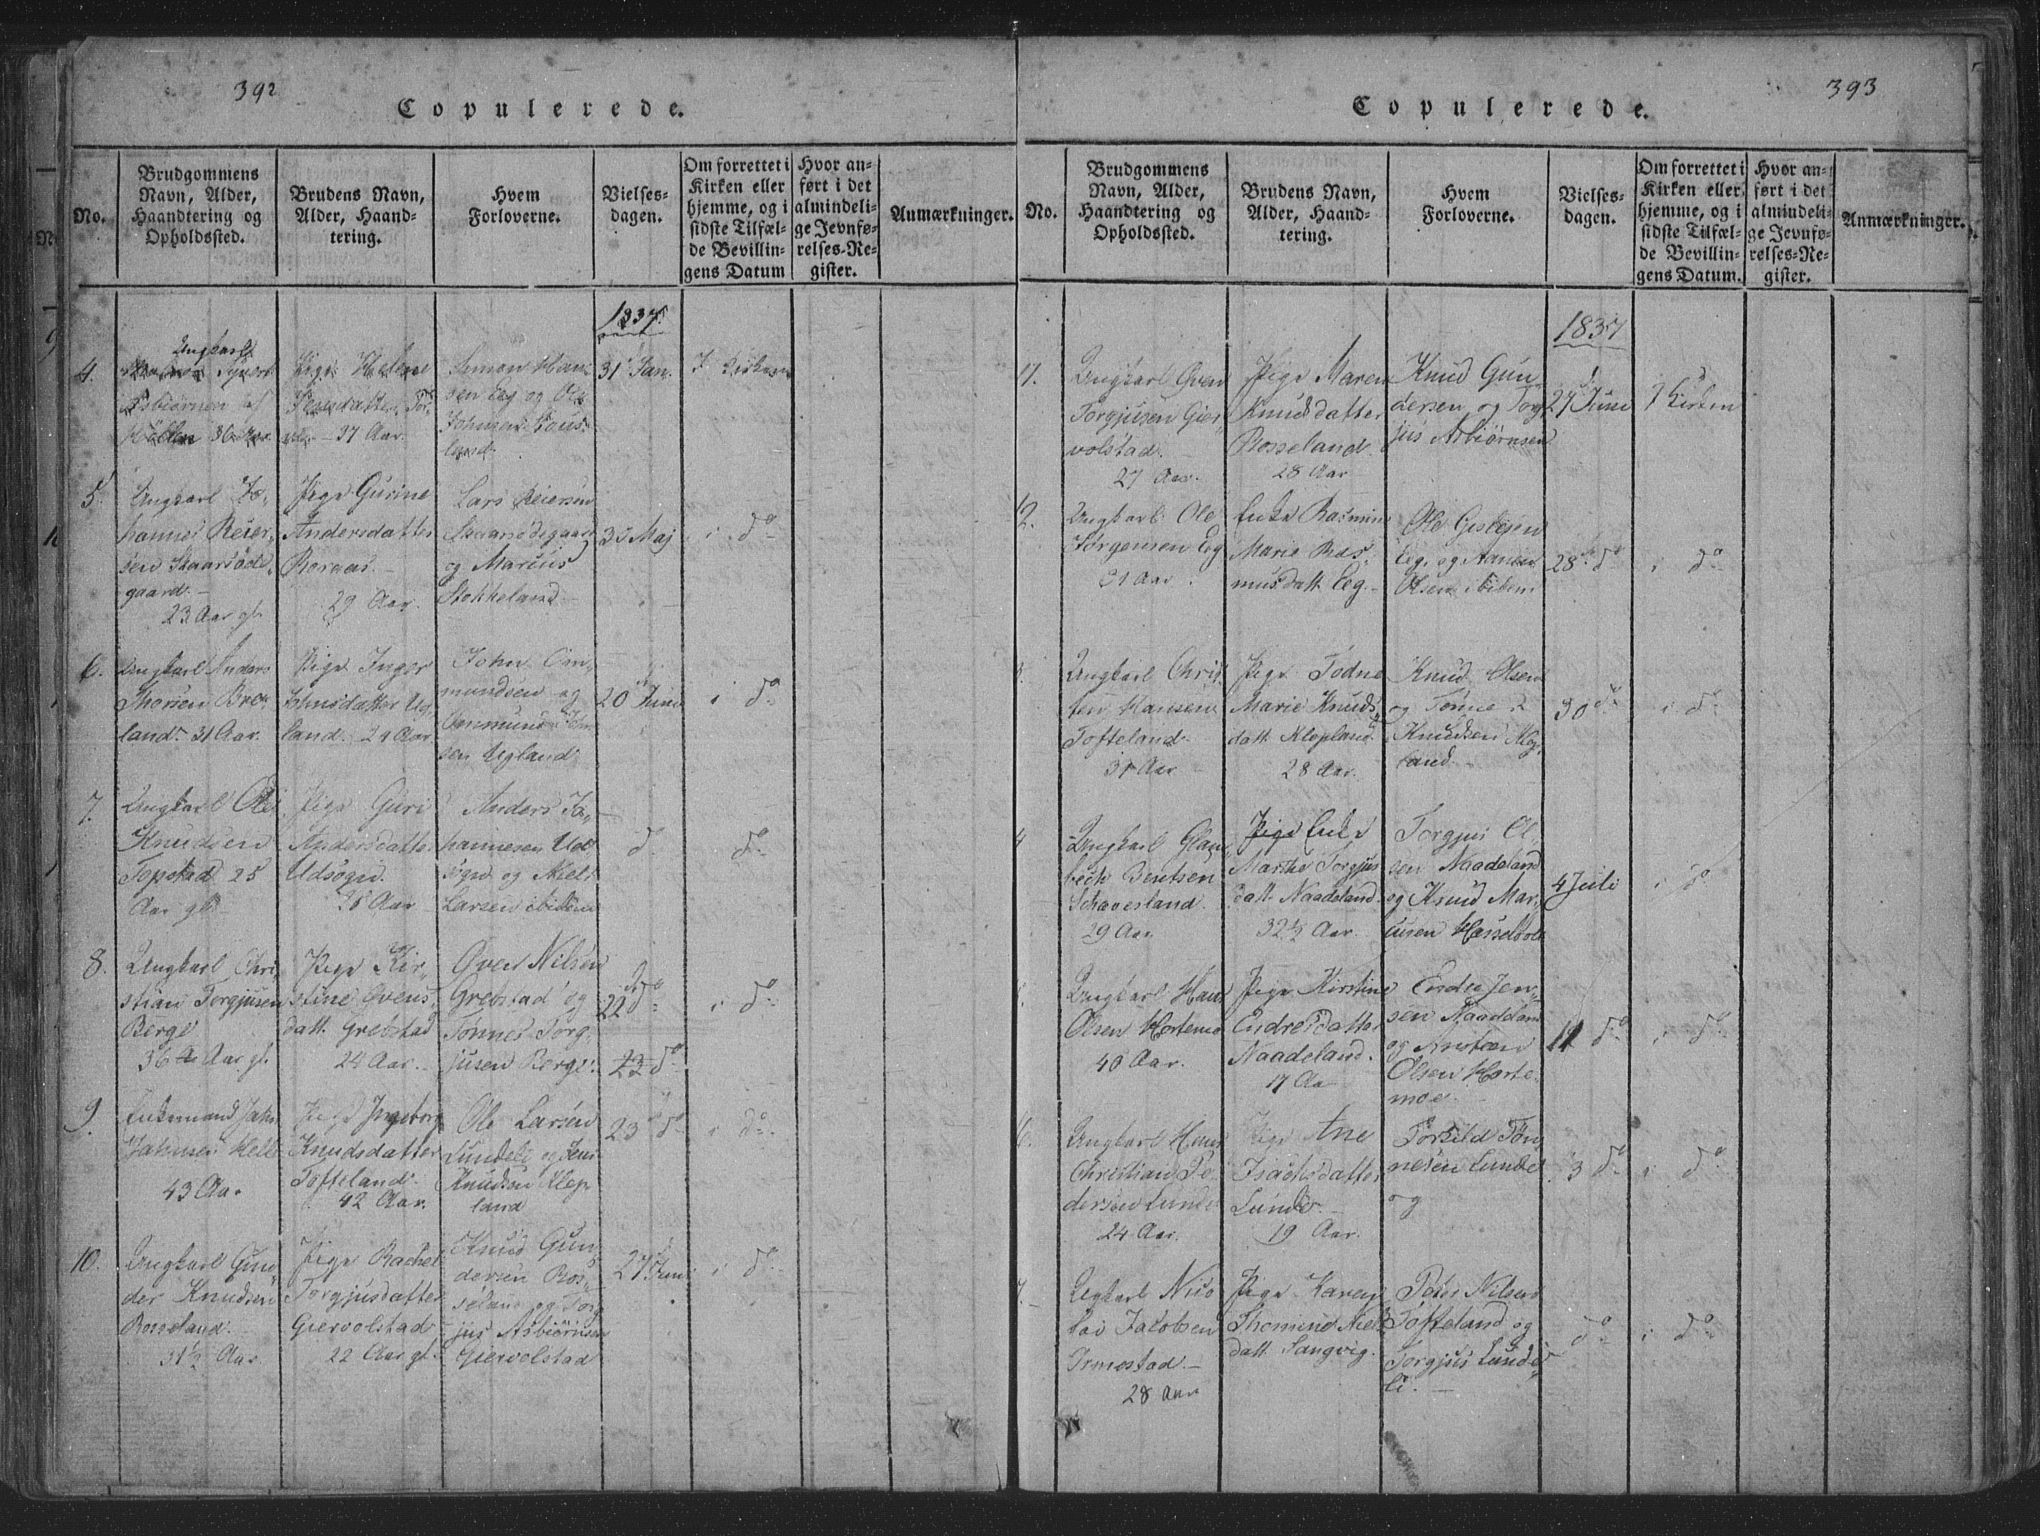 392
Copulerede.
No.
Brudgommens
Navn, Alder,
Haandtering og
Opholdssted.
Brudens Navn,
Alder, Haand-
tering.
Hvem
Forloverne.
Vielses-
dagen.
Om forrettet i
Kirken eller
hjemme, og i
sidste Tilfæl-
de Bevillin-
gens Datum
Hvor an-
ført i det
almindeli-
ge Jevnfø-
relses-Re-
gister.
Anmærkninger.
1837.
4.
Ungkarl
Pige Helene
37 Aar.
Simon Han-
sen Eeg og Ole
31 Jan.
I Kirken
5.
Ungkarl Jo-
hannes Reier-
sen Skaarsøde-
gaard.
23 Aar gl.
Pige Gurine
Andersdatter
Roraas.
29 Aar.
Lars Reiersen
Skaarsødegaard
og Marcus
Stokkeland
Maj
i do
6.
Ungkarl Anders
Thorsen Bre-
land. 31 Aar.
Pige Inger
Johnsdatter Ug-
land. 24 Aar
John Om-
mundsen og
Ommund John-
sen Ugland
20 Juni
i do
7.
Ungkarl Ole
Knudsen
Topstad 25
Aar gl.
Pige Guri
Andersdatter
Udsogn.
Aar
Anders Jo-
hannesen Ud-
sogn og Niels
Larsen ibidem
do
do
8.
Ungkarl Chri-
stian Torgjusen
Berge
36 Aar gl.
Pige Kir-
stine Ovens-
datt. Grebstad
24 Aar.
Oven Nilsen
Grebstad og
Tønnes Torg-
jusen Berge.
22 do
23 do
i do
9.
Enkemand Jahn
Jahnsen Helle
43 Aar
Pige Ingeborg
Knudsdatter
Tofteland.
42 Aar.
Ole Larsen
Lundeli og Jens
Knudsen Klep-
land
23 do
i do
10.
Ungkarl Gun-
der Knudsen
Rosseland.
31½ Aar.
Pige Rachel
Torgjusdatter
Giervolstad
22 Aar gl.
Knud Gun-
dersen Ros-
seland og Torg-
jus Asbiørnsen
Giervolstad
27 Juni
i do
393
Copulerede.
No.
Brudgommens
Navn, Alder,
Haandtering og
Opholdssted.
Brudens Navn,
Alder, Haand-
tering.
Hvem
Forloverne.
Vielses-
dagen.
Om forrettet i
Kirken eller
hjemme, og i
sidste Tilfæl-
de Bevillin-
gens Datum.
Hvor an-
ført i det
almindeli-
ge Jevnfø-
relses-Re-
gister.
Anmærkninger.
1837
11.
Ungkarl Oven
Torgjusen Gier-
volstad.
27 Aar.
Pige Maren
Knudsdatter
Rosseland.
28 Aar
Knud Gun-
dersen og Torg-
jus Asbiørnsen
27 Juni
I Kirken
12.
Ungkarl Ole
Jørgensen Eeg
31 Aar.
Enke Rasmine
Marie Ras-
musdatt. Eeg.
Ole Gislesen
Eeg, og Aanen
Olsen ibidem
28 do
i do
Ungkarl Chris-
ten Hansen
Tofteland
31 Aar
Pige Todne
Marie Knuds-
datt. Klepland
28 Aar.
Knud Olsen
og Tønne
Knudsen Klep-
land.
30 do
i do
4
Ungkarl Glam-
beck Bentsen
Schaverland.
29 Aar
Pige Enke
Marthe Torgjus-
datt. Naadeland.
32½ Aar.
Torgjus Ol-
sen Naadeland
og Knud Mar-
cusen Hæsselvold
4 Juli
i do
Ungkarl Hans
Olsen Hortemo
40 Aar.
Pige Kirstine
Endresdatter
Naadeland.
17 Aar
Endre Jen-
sen Naadeland
og Aresteen
Olsen Horte-
moe.
11 do
i do
6.
Ungkarl Hans
Christian Pe-
dersen Lunde
24 Aar.
Pige Ane
Isachsdatter
Lunde.
19 Aar.
Torkild Tøn-
nesen Lunde
og
3 do
i do
7
Ungkarl Nico-
lai Jacobsen
Drmestad.
28 Aar
Pige Karen
Thomine Niels-
datt. Langvig.
Peter Nilsen
Tofteland og
Torgjus Lunde-
li.
do
i do